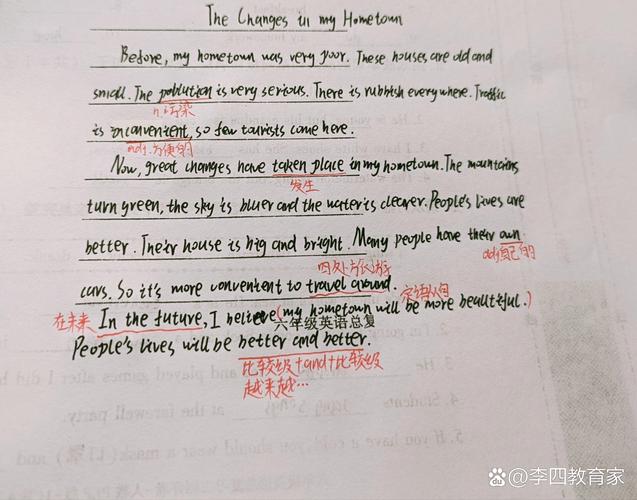 The Changes in my Hometown
Before, my hometown was very poor. These houses are old and
small. The pollution is very serious. There is rubbish everywhere. Traffic
n.污染
is inconvenient, so few tourists come here.
adj.方便的
Now, great changes have taken place in my hometown. The mountains
发生
turn green, the sky is bluer and the water is clearer. People's lives are
better. Their house is big and bright. Many people have their own
adj自己的
四处旅游
cars. So it's more convenient to travel around.
宾语从句
在未来 In the future, I believe (my hometown will be more beautiful.)
六年级英语总复
People's lives will be better and better.
比较级+and+比较级
越来越…
3. He and played games after I did h
4. Students at the farewell party.
5. If you have a cold, you should wear a mask (口罩) and
@李四教育家